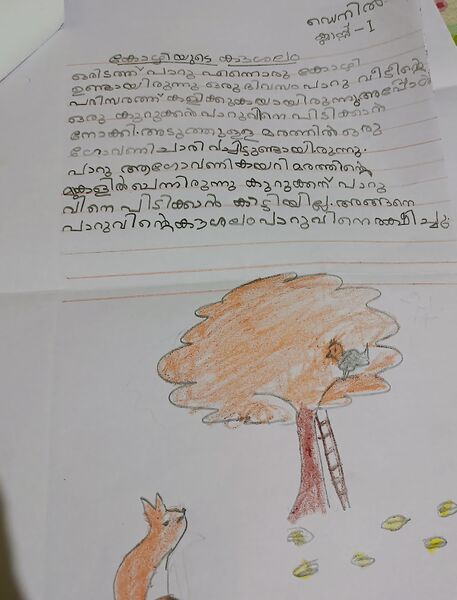 ഡെനിൽ
ക്ലാസ്സ് - I
കോഴിയുടെ കൗശലം
ഒരിടത്ത് പാറു എന്നൊരു കോഴി
ഉണ്ടായിരുന്നു ഒരു ദിവസം പാറു വീട്ടിന്റെ
പരിസരത്ത് കളിക്കുകയായിരുന്നു അപ്പോൾ
ഒരു കുറുക്കൻ പാറുവിനെ പിടിക്കാൻ
നോക്കി. അടുത്തുള്ള മരത്തിൽ ഒരു
ഗോവണി ചാരി വച്ചിട്ടുണ്ടായിരുന്നു.
പാറു ആ ഗോവണി കയറി മരത്തിന്റെ
മുകളിൽ ബന്നിരുന്നു കുറുക്കന് പാറു
വിനെ പിടിക്കാൻ കിട്ടിയില്ല. അങ്ങനെ
പാറുവിന്റെ കൗശലം പാറുവിനെ രക്ഷിച്ചു